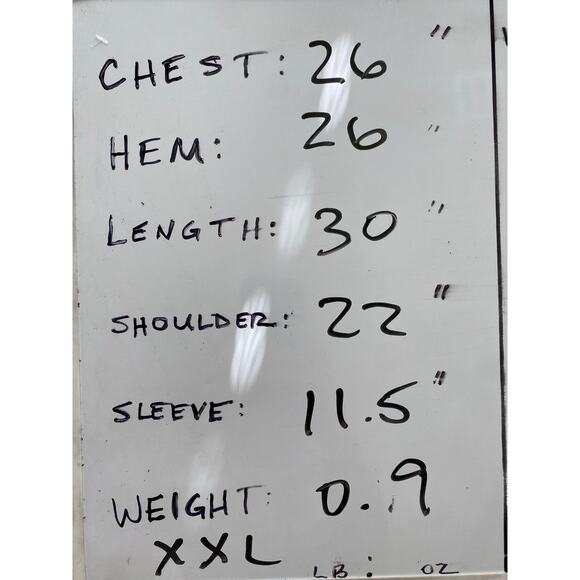 CHEST: 26 "
HEM: 26 "
LENGTH: 30 "
SHOULDER: 22 "
SLEEVE: 11.5 "
WEIGHT: 0.9
XXL LB: OZ